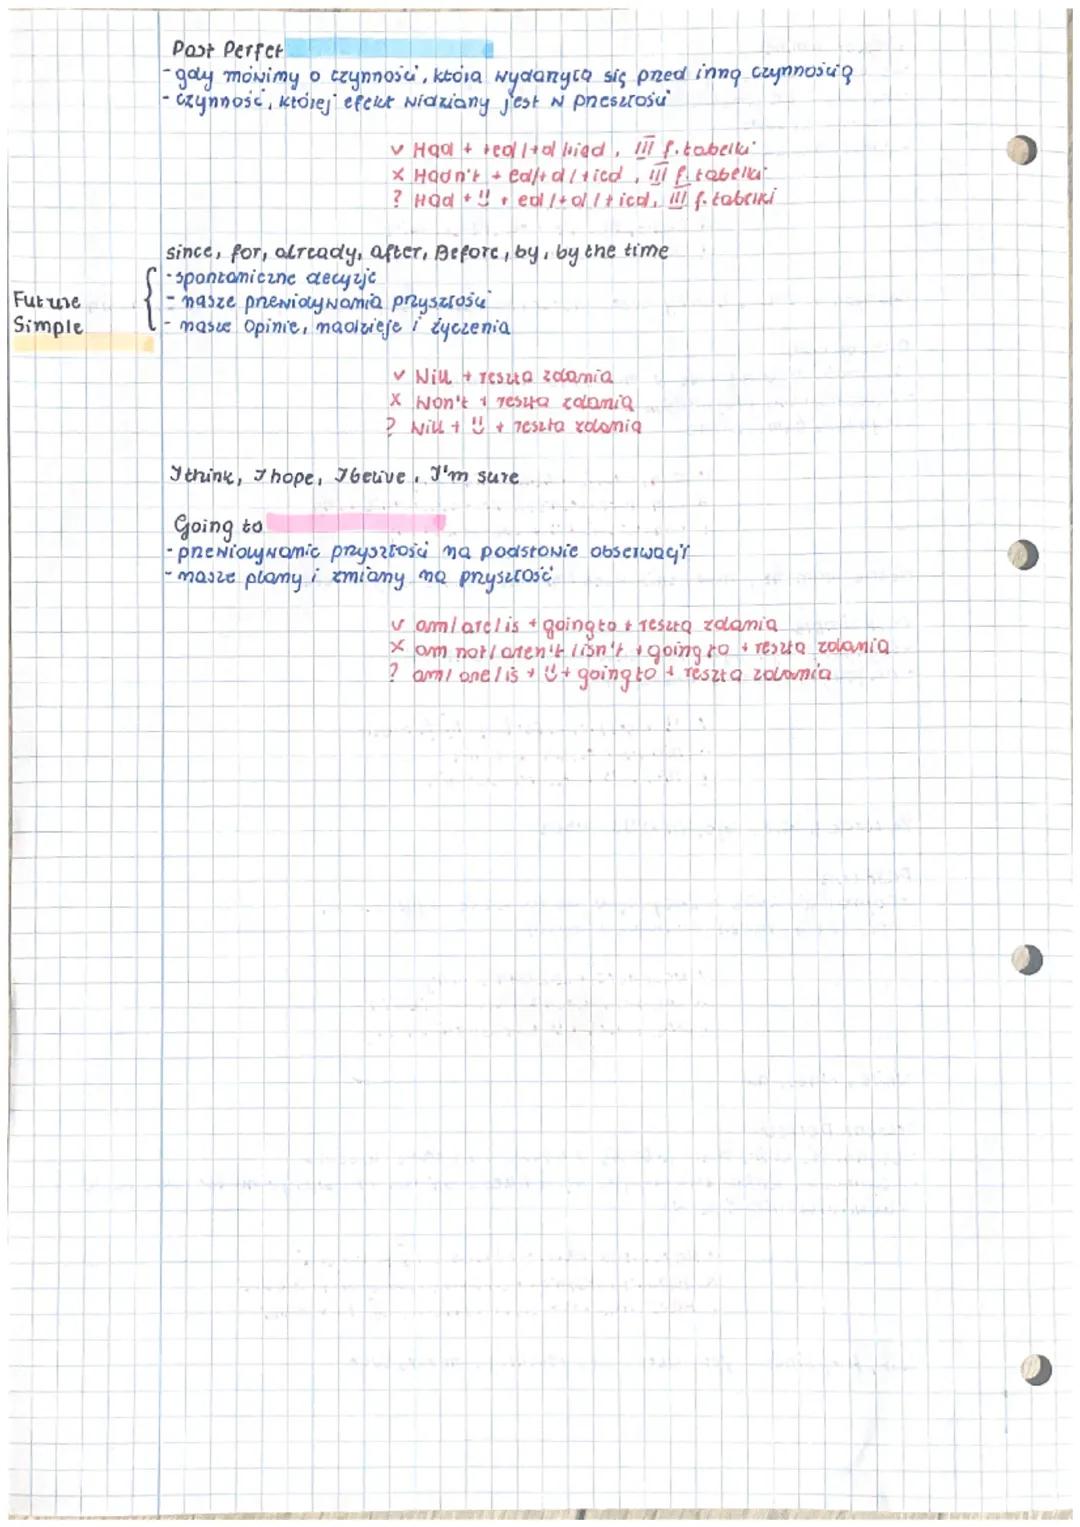 Past Perfect
- gdy mówimy o czynności, która wydarzyła się przed inną czynnością
- czynność, której efekt widziany jest w przeszłości
v Had + +ed/+d/+ied, III f. tabelki
x Hadn't + ed/+d/+ied, III f. tabelki
? Had + ☺ + ed/+d/+ied, III f. tabelki
since, for, already, after, Before, by, by the time
Future Simple
- spontaniczne decyzje
- nasze przewidywania przyszłości
- nasze opinie, nadzieje i życzenia
v Will + reszta zdania
x Won't + reszta zdania
? Will + ☺ + reszta zdania
I think, I hope, I belive, I'm sure
Going to
- przewidywanie przyszłości na podstawie obserwacji
- nasze plany i zmiany na przyszłość
v am/are/is + going to + reszta zdania
x am not/aren't/isn't + going to + reszta zdania
? am/are/is + ☺ + going to + reszta zdania